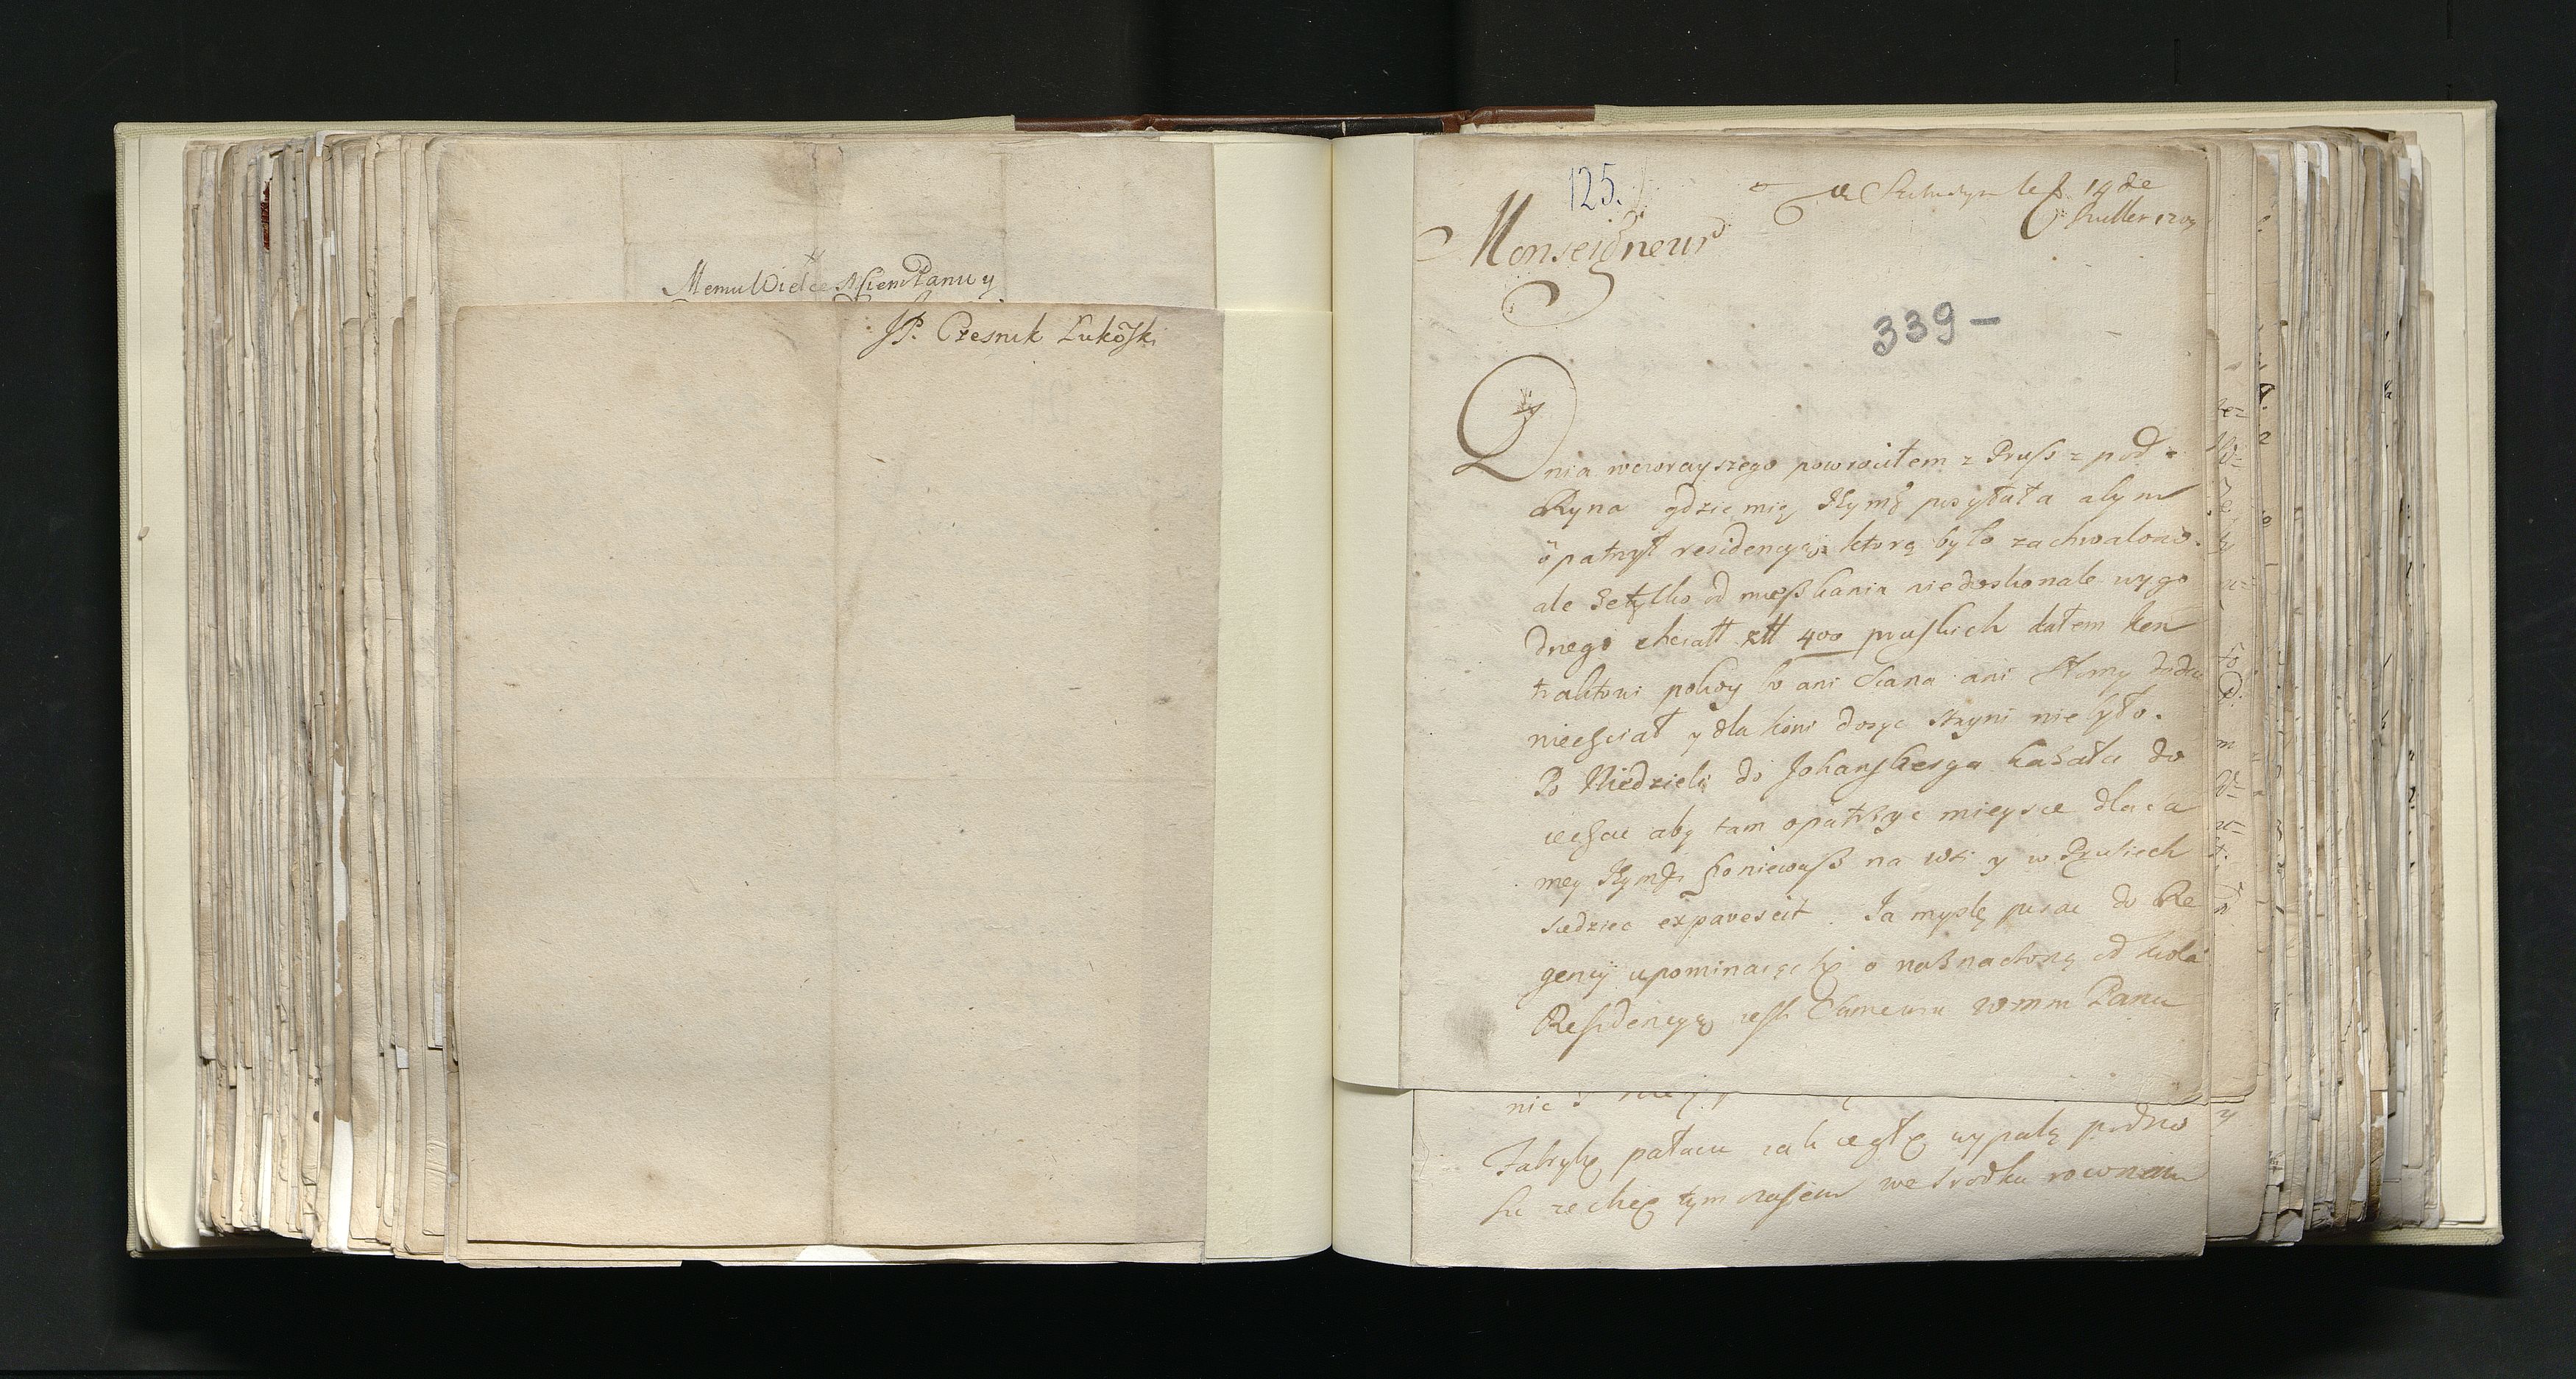 Memu Wielce Mciem Panu y
JP. Czesnik Lukoski
125.
a le 14 de
Juller 1709
Monseigneur
339-
Dnia wczorayszego powrocilem z Pruss z pod
Ryna gdzie mię Jeymć posyłała abym
opatrzył residencyą ktorą było zachwalono.
ale że tylko od mięszkania niedoskonale wygo
dnego chciał zł 400 pruskich dałem kon
traktowi pokoy bo ani siana ani słomy dodać
niechciał y dla koni dosyc stayni niebyło.
Po Niedzieli do Johansberga kazała do
iechac aby tam opatrzyc mieysce dla sa
mey Jeymści poniewasz na wsi y w Prusiech
siedziec expavescit. Ja myslę pisac do Re
gency upominaiąc się o naznaczoną od krola
Residencyą iesli Wmm Panu
nie
Fabrykę pałacu iak cegłę wypalą podno
tym czasem we srodku